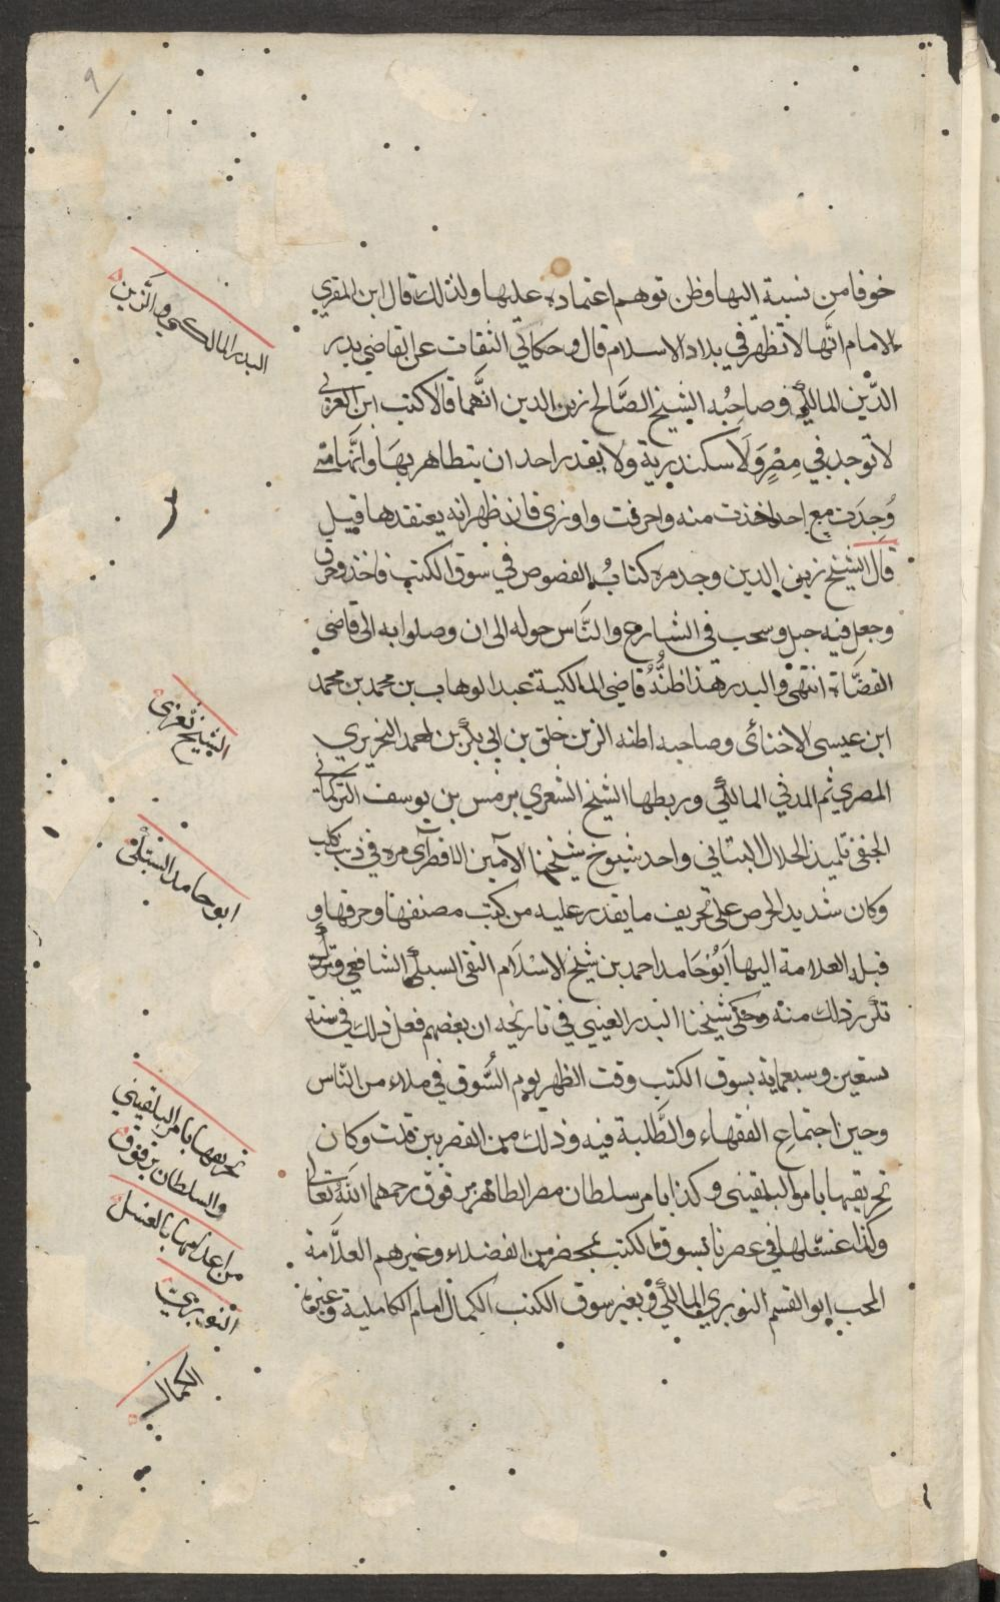 خوفا من نسبة اليها وظن توهم اعتماده عليها ولذلك قال ابن المقري
الامام انها لا تظهر في بلاد الاسلام قال وحكا لي الثقات عن القاضي بدر
الدّين المالكي وصاحبُه الشيخ الصَّالح زين الدين انَّهما قالا كتب ابن العربي
لا توجد في مِصْرَ وَلَا سكندرية ولا يقدر احد ان يتظاهر بهَا وانَّها متى
وُجِدَت مع احد اخذت منه واحرقت واوذي فان ظهر انه يعتقدها قيل
قال الشيخ زين الدين وجد مره كتابُ الفصوص في سوق الكتب فاخذ وحرق
وجعل فيه حبل وسحب في الشارع والنَّاس حوله الى ان وصلوا به الى قاضي
القضَاة انتهى والبدر هذا اظنُّهُ قاضي المالكية عبد الوهاب بن محمد بن محمد
ابن عيسى الاخنائى وصاحبه اظنه الزين خلق بن ابي بكر بن احمد النحريري
المصري ثم المدني المالكي وربطها الشيخ الشعري برمس بن يوسف التركماني
الحنفي تلميذ الجلال التباني واحد شيوخ شيخنا الامين الاقصرآى مره في ذنب كلب
وكان شديد الحرص على تحريف ما يقدر عليه من كتب مصنفها وحرقها و
قبله العلامة البها اَبُو حَامد احمد بن شيخ الاسْلَام التقى السبكي الشافعي وتكرر
تكرر ذلك منه وحكى شيخنا البدر العيني في تاريخه ان بعضهم فعل ذلك في سنة
تسعين وسبعماية بسوق الكتب وقت الظهر يوم السُّوق في ملاء من النّاس
وحين اجتماع الفقهاء والطَّلبة فيه وذلك من القصرين قلت وكان
تحريقها بامر البلقينى وكذا بامر سلطان مصر الظاهر برقوق رحمهما اللّه تعالى
وكذا غسّلها في عصرنا بسوق الكتب بمحضر من الفضلاء وغيرهم العلاَّمة
المحب ابو القسم النويري المالكي وبغير سوق الكتب الكمال امام الكاملية وغيره
البدر المالكي والزين
الشيخ شعرى
ابو حامد السبكى
تحريقها بامر البلقيني
والسلطان برقوق
من اعدامها بالغسل
النويري
الكمال
٩